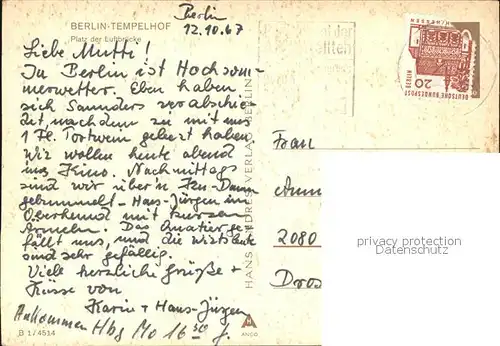 BERLIN-TEMPELHOF
Platz der Luftbrücke
Berlin
12.10.67
Liebe Mutti!
In Berlin ist Hochsom-
merwetter. Eben haben
sich Saunders verabschie-
det, nachdem zu mit uns
1 Fl. Portwein geleert haben.
Wir wollen heute abend
ins Kino. Nachmittags
sind wir über'n Ku-Damm
gebummelt - Hans-Jürgen im
Oberhemd mit kurzen
Ärmeln. Das Quartier ge-
fällt uns, und die Wirtsleute
sind sehr gefällig.
Viele herzliche Grüße +
Küsse von
Karin + Hans-Jürgen
Ankommen Hbg Mo 16 50
B 1 / 4514
HANS ANDRES VERLAG BERLIN
ANDG
DEUTSCHE BUNDESPOST
20
LORSCH/HESSEN
Frau
2080
privacy protection
Datenschutz